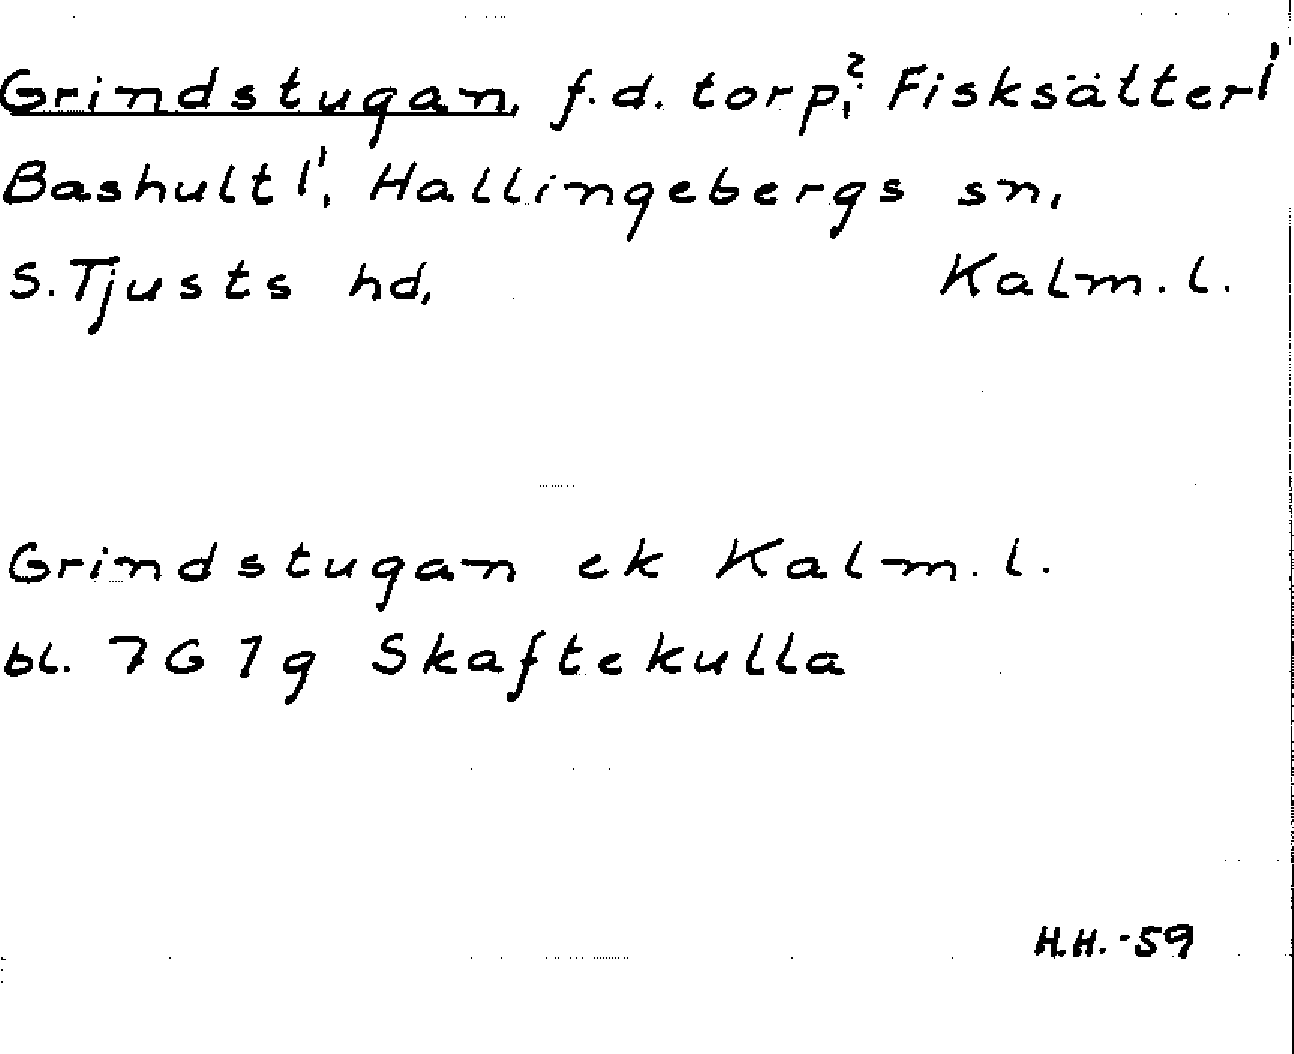 Grindstugan, f.d. torp,? Fisksätter 1'
Bashult 1', Hallingebergs sn,
S. Tjusts hd, Kalm. l.
Grindstugan ek Kalm. l.
bl. 7G 1g Skaftekulla
H.H. -59